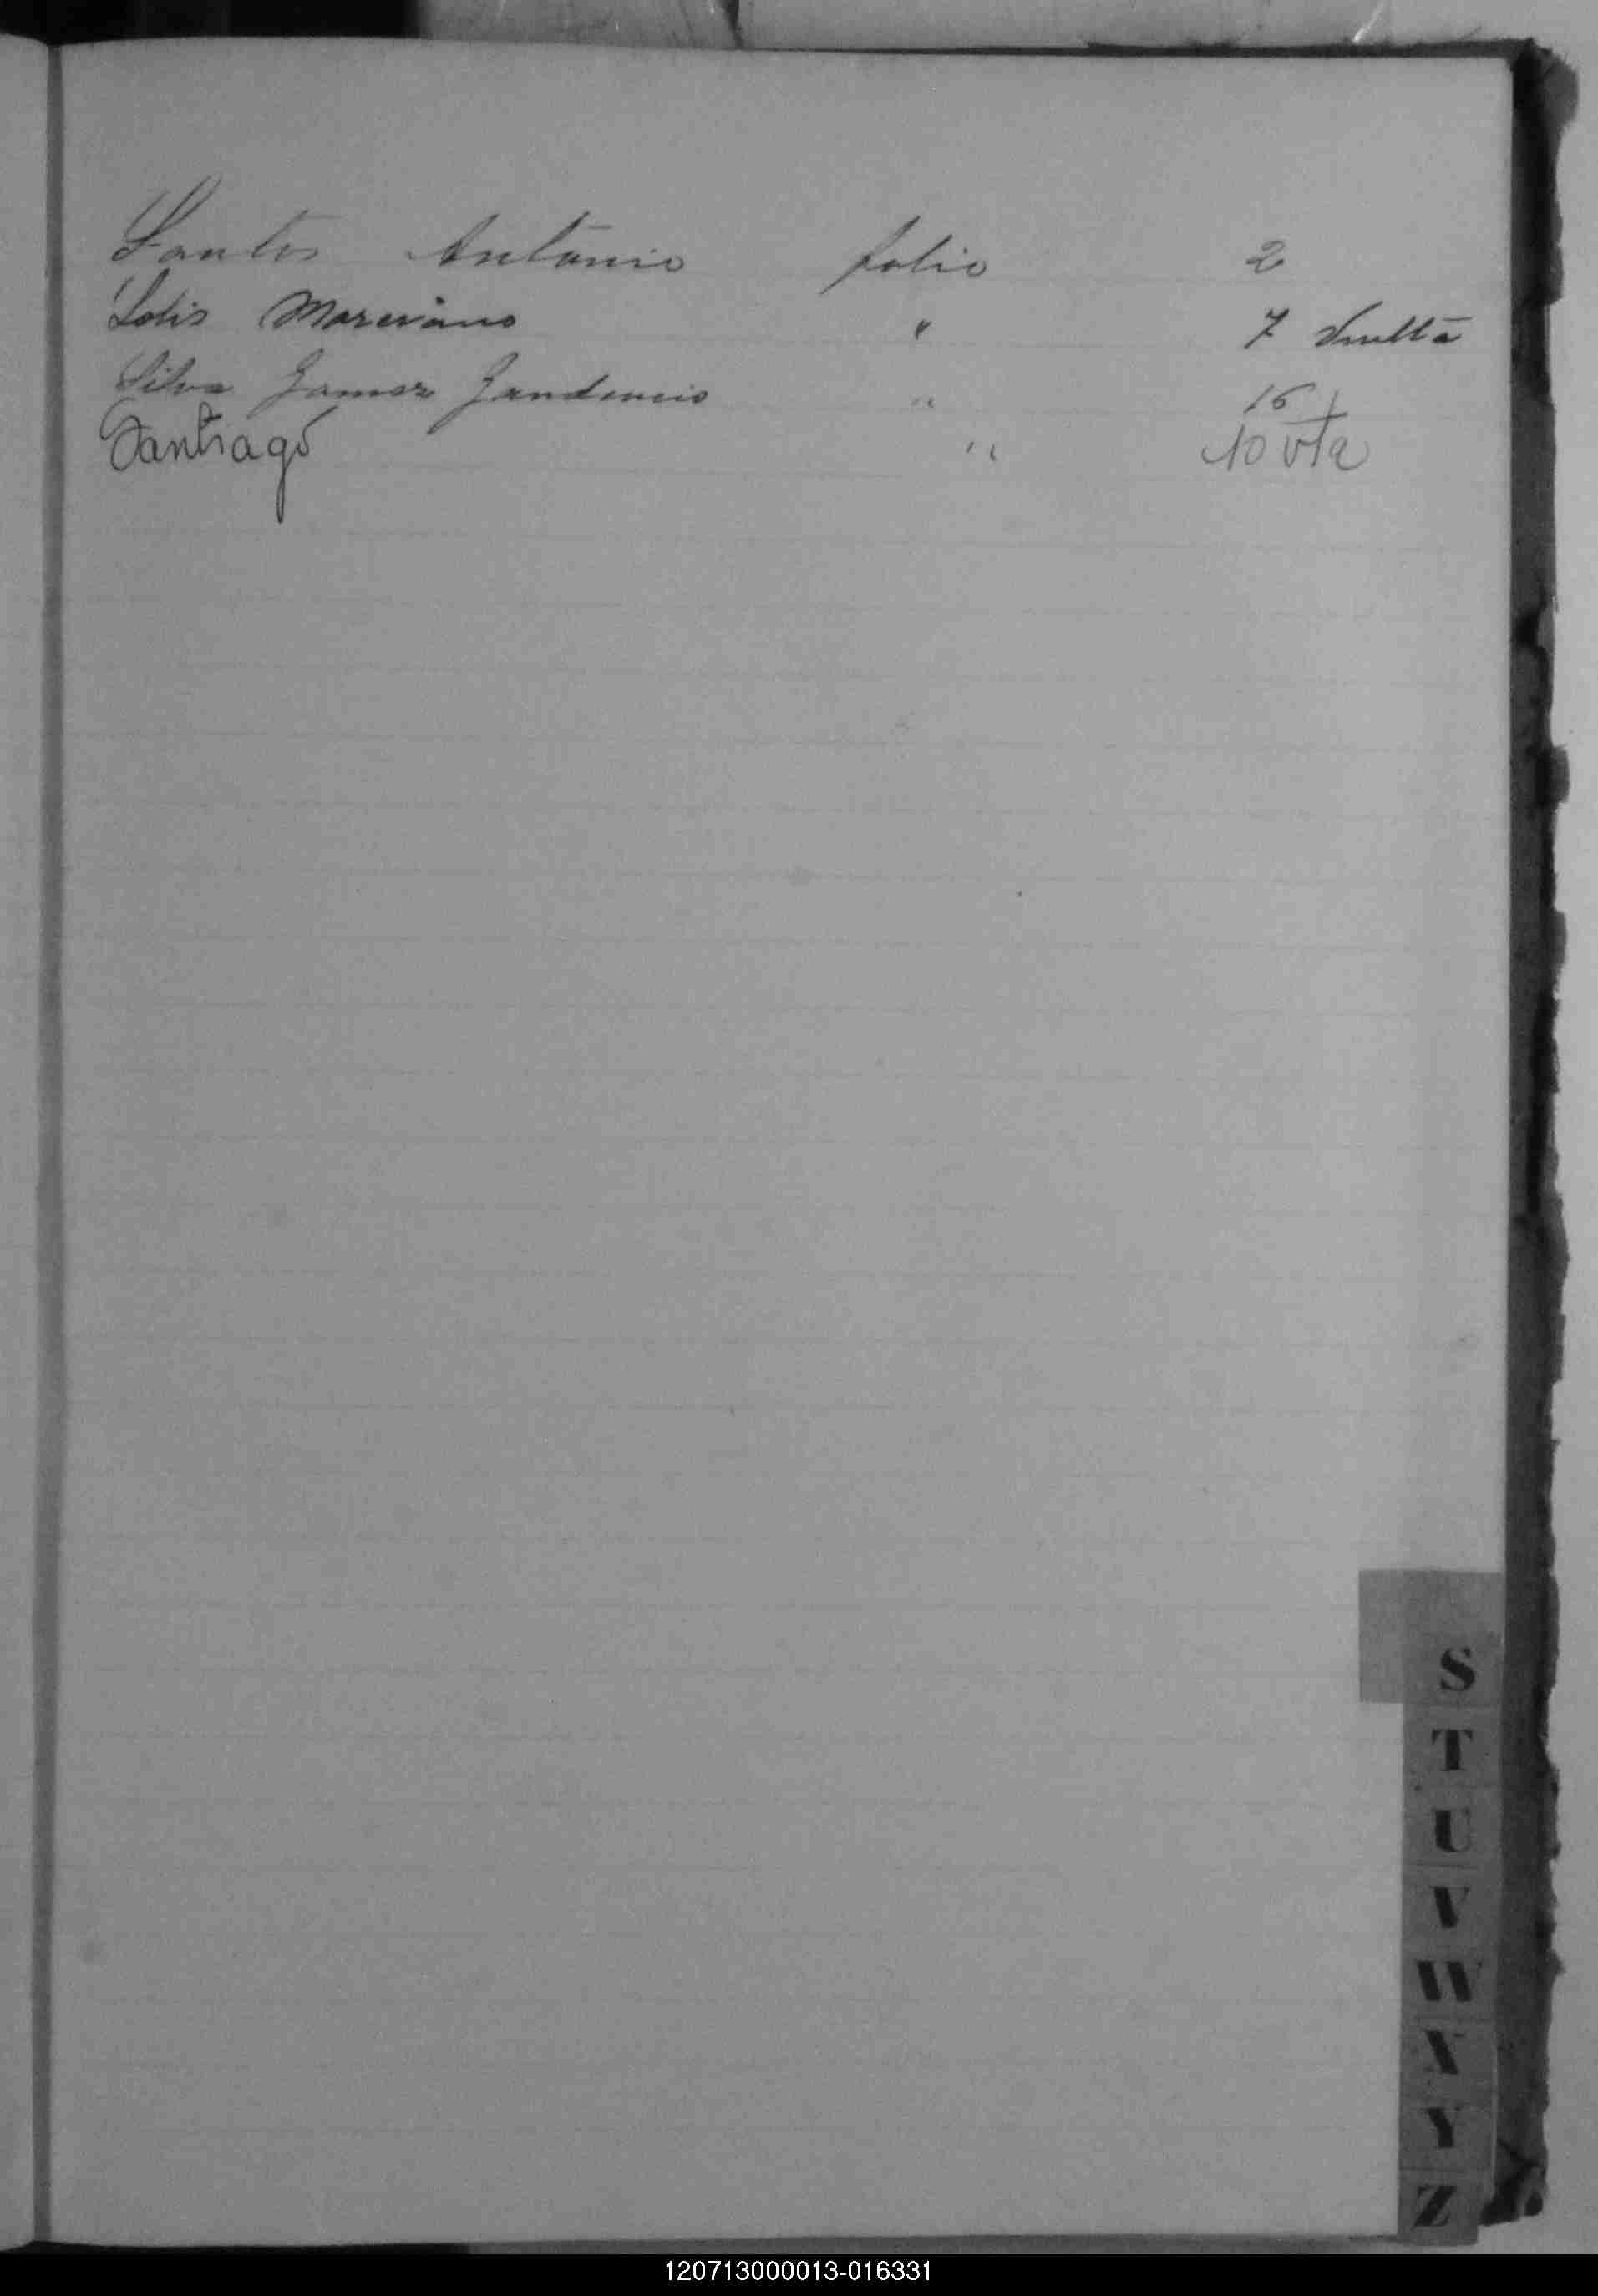 Santos Antonio folio 2
Solis Marciano " 7 Vuelta
Silva Gamez Gaudencio " 16
Santiago " 10 vta
S
T
U
V
W
X
Y
Z
120713000013-016331